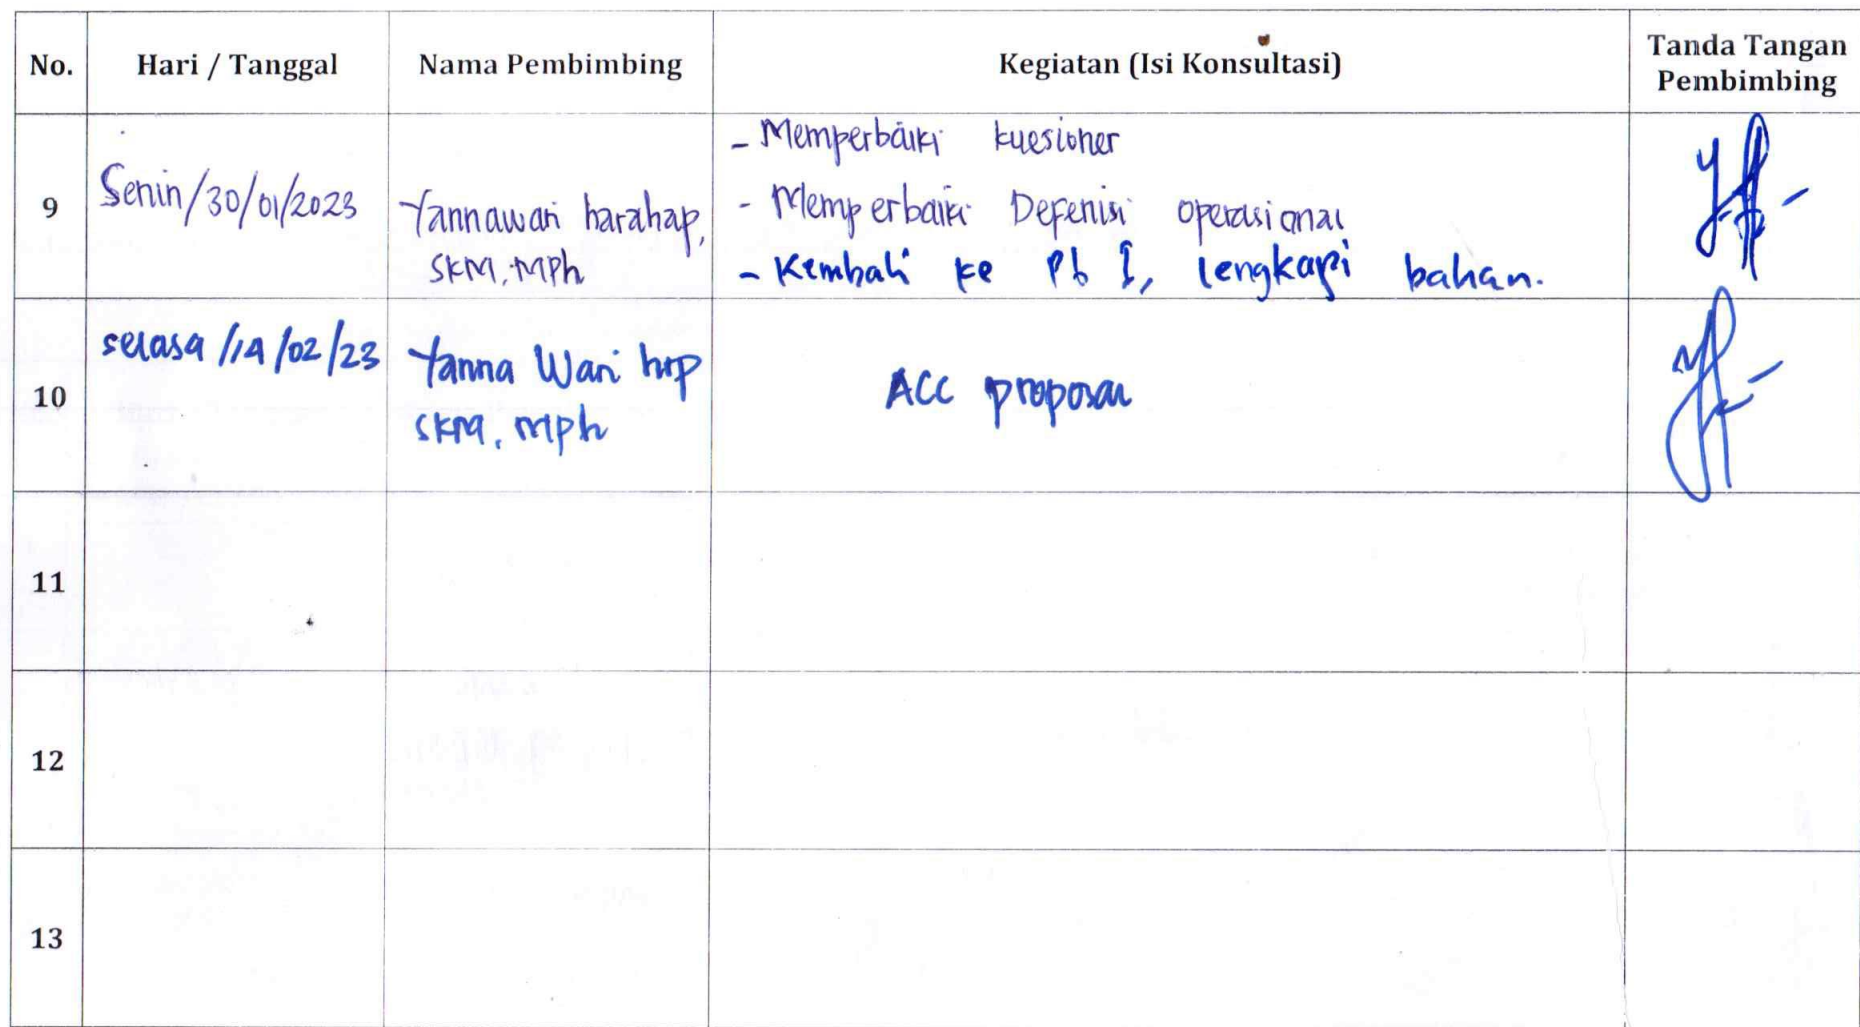 No. Hari / Tanggal Nama Pembimbing Kegiatan (Isi Konsultasi) Tanda Tangan
Pembimbing
9 Senin/30/01/2023 Yannawari harahap,
SKM, MPh
- Memperbaiki kuesioner
- Memperbaiki Defenisi operasional
- Kembali ke Pb I, lengkapi bahan.
10 selasa /14/02/23 Yanna Wari hrp
SKM, MPh
ACC proposal
11
12
13